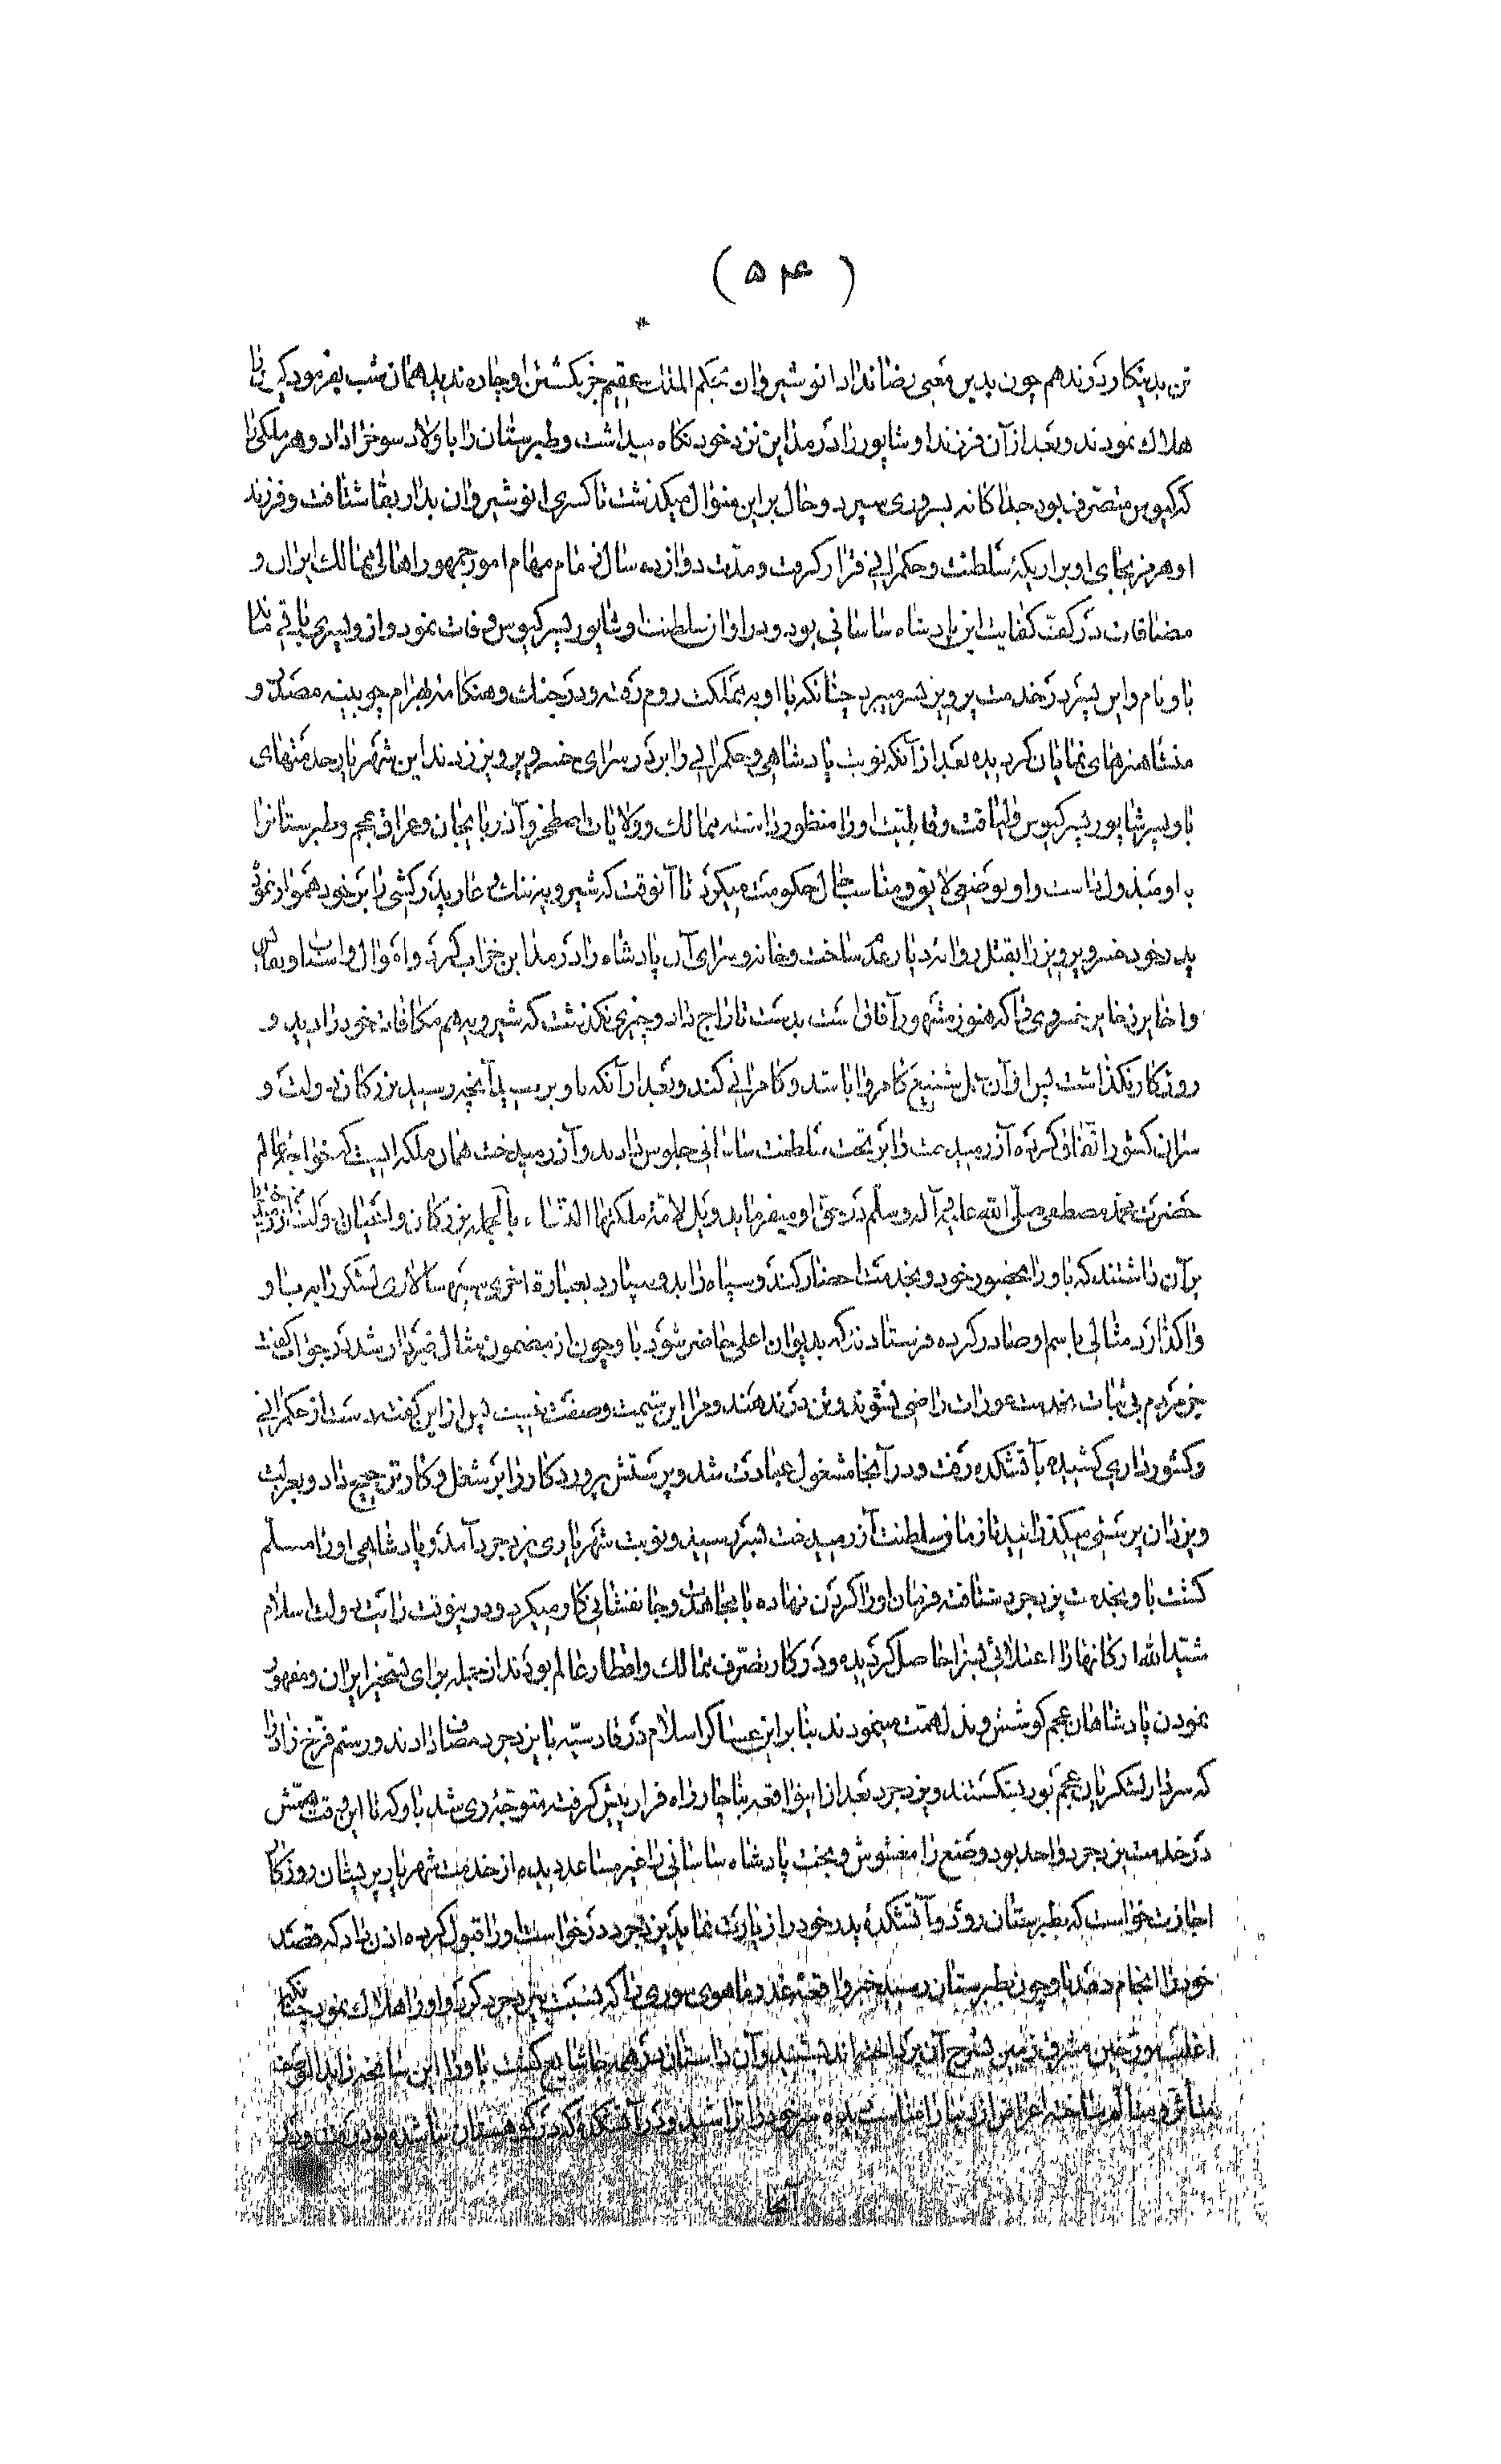 ( ۵۴ )
تن بدینکار در ندهم چون بدین معنی رضا نداد انوشیروان بحکم الملک عقیم جز بکشتن او چاره ندید همان شب بفرمود کیوس را
هلاک نمودند و بعد از آن فرزند او شاپور را در مداین نزد خود نگاه میداشت و طبرستان را باولاد سوخرا داد و هر ملکی را
که کیوس متصرف بود جداگانه بسروری سپرد و حال بر این منوال میگذشت تا کسری انوشیروان بدار بقا شتافت و فرزند
او هرمز بجای او بر اریکهٔ سلطنت و حکمرانی قرار گرفت و مدّت دوازده سال زمام مهام امور جمهور اهالی ممالک ایران و
مضافات در کف کفایت این پادشاه ساسانی بود و در اوان سلطنت او شاپور پسر کیوس وفات نمود و از او پسری باقی ماند
باو نام و این پسر در خدمت پرویز بسر میبرد چنانکه با او به مملکت روم رفته و در جنک و هنکامهٔ بهرام چوبینه مصدر و
منشأ هنرهای نمایان کردیده بعد از آنکه نوبت پادشاهی و حکمرانی را بر در سرای خسرو پرویز زدند این شهریار خدمتهای
باو پسر شاپور پسر کیوس و لیاقت و قابلیت او را منظور داشته ممالک و ولایات اصطخر و آذربایجان و عراق عجم و طبرستانرا
باو مبذول داشت و او بوضعی لایق و مناسب حال حکومت میکرد تا آنوقت که شیرویه ننک و عار پدر کشی را بر خود هموار نموده
پدر خود خسرو پرویز را بقتل روانه دیار عدم ساخت و خانه و سرای آن پادشاه را در مداین خراب کرد و اموال و اسباب او
و اخایر ذخایر خسروی را که هنوز مشهور آفاق است بدست تاراج داد و چیزی نکذشت که شیرویه هم مکافات خود را دید و
روزکار نکذاشت پس از آن عمل شنیع کامروا باشد و کامرانی کند و بعد از آنکه باو برسید آنچه رسید بزرکان دولت و
سران کشور اتفاق کرده آزرمیدخت را بر تخت سلطنت ساسانی جلوس دادند و آزرمیدخت همان ملکه ایست که خواجهٔ عالم
حضرت محمد مصطفی صلّی الله علیه و آله و سلّم در حق او میفرماید ویل لامّة ملکتها النّساء ، بالجمله بزرکان و اعیان دولت آزرمیدخت را
بر آن داشتند که باو را بحضور خود و بخدمت احضار کند و سپاه را بدو سپارد بعبارة اخری سپهسالاری لشکر را به باو
واکذارد مثالی باسم او صادر کرده فرستادند که بدیوان اعلی حاضر شود باو چون از مضمون مثال خبردار شد در جواب گفت
جز مردم بی ثبات بخدمت عورات راضی نشوند و تن در ندهند و مرا این شیمت و صفت نیست پس از این گفت دست از حکمرانی
و کشورداری کشیده بآتشکده رفت و در آنجا مشغول عبادت شد و پرستش پروردکار را بر شغل و کار ترجیح داد و بعزلت
و یزدان پرستی میکذرانید تا زمان سلطنت آزرمیدخت بسر رسید و نوبت شهریاری یزدجرد آمد و پادشاهی او را مسلّم
کشت باو بخدمت یزدجرد شتافت فرمان او را کردن نهاده با مجاهدت و جانفشانی کار میکرد و در اینوقت رایت دولت اسلام
شیّد الله ارکانها را اعتلائی بسزا حاصل کردیده و در کار تصرف ممالک و اقطار عالم بودند از جمله برای تسخیر ایران و مقهور
نمودن پادشاهان عجم کوشش و بذل همت مینمودند بنا بر این عساکر اسلام در قادسیّه با یزدجرد مصاف دادند و رستم فرّخ زاد را
که سردار لشکریان عجم بود بشکستند و یزدجرد بعد از اینواقعه بناچار راه فرار پیش کرفت متوجّه ری شد باو که تا این وقت
در خدمت یزدجرد واحد بود وضع را مغشوش و بخت پادشاه ساسانی را غیر مساعد دیده از خدمت شهریار پریشان روزکار
اجازت خواست که بطبرستان رود و آتشکدهٔ پدر خود را زیارت نماید یزدجرد درخواست او را قبول کرده اذن داد که مقصد
خود را انجام دهد باو چون بطبرستان رسید خبر واقعهٔ غدر ماهوی سوری را که نسبت بیزدجرد کرد و او را هلاک نمود چنانکه
اغلب مورخین مشرق زمین بشرح آن پرداخته اند بشنید و آن داستان در همه جا شایع کشت باو را این سانحه
متأثر و متألم ساخته اعراض از دنیا را مناسب دیده سر خود را تراشید و در آتشکده که در کوهستان بود
آنجا